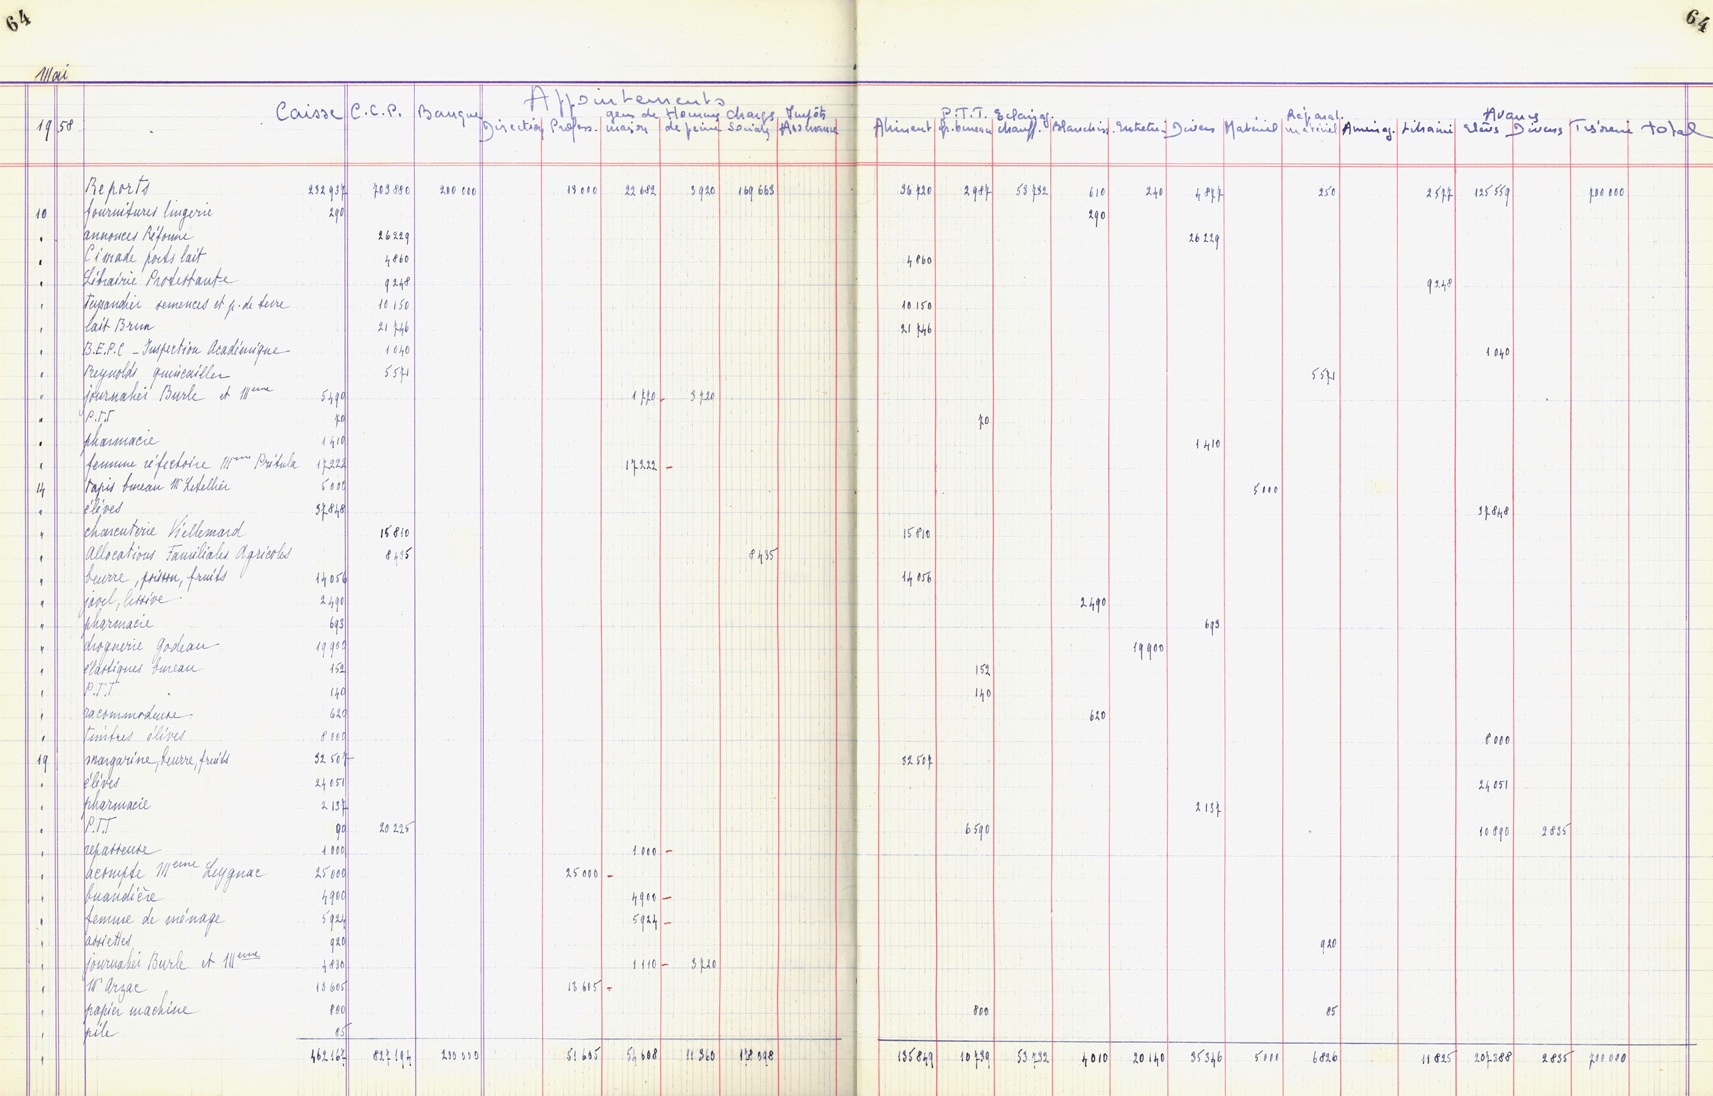 64 64
Mai
19 58 Caisse C.C.P. Banque Appointements Direction Profess. gens de maison Hommes de peine Charges Sociales Impôts Assurances Aliment P.T.T. fr. bureau Eclairag chauff. Blanchis. Entretien Divers Matériel Réparat. matériel Aménag. Librairie Avances Elèves Divers Trésorerie total
Reports 232 937 703 880 200 000 13 000 22 682 3 920 169 663 36 720 2 987 53 732 610 240 4 877 250 2 577 125 559 700 000
10 fournitures lingerie 290 290
" annonces Réforme 26 229 26 229
" Cimade ports lait 4 860 4 860
" Librairie Protestante 9 248 9 248
" semences et p. de terre 10 150 10 150
" lait Brun 21 746 21 746
" B.E.P.C - Inspection Académique 1 040 1 040
" Reynolds quincailler 5 571 5 571
" journalier Burle et Mme 5 490 1 770 3 720
" P.T.T 70 70
" pharmacie 1 410 1 410
" femme réfectoire Mme Pritula 17 222 17 222
14 tapis bureau Mr Letellier 5 000 5 000
" élèves 37 848 37 848
" charcuterie Viellemard 15 810 15 810
" Allocations Familiales Agricoles 8 435 8 435
" beurre, poisson, fruits 14 056 14 056
" javel, lessive 2 490 2 490
" pharmacie 693 693
" droguerie Godeau 19 900 19 900
" élastiques bureau 152 152
" P.T.T 140 140
" racommodeuse 620 620
" timbres élèves 8 000 8 000
19 margarine, beurre, fruits 32 507 32 507
" élèves 24 051 24 051
" pharmacie 2 137 2 137
" P.T.T 90 20 225 6 590 10 890 2 835
" repasseuse 1 000 1 000
" acompte Mme Leygnac 25 000 25 000
" buandière 4 900 4 900
" femme de ménage 5 924 5 924
" assiettes 920 920
" journalier Burle et Mme 4 830 1 110 3 720
" Mr Arzac 13 605 13 605
" papier machine 800 800 85
" pile 85
" 462 167 827 194 200 000 51 605 54 608 11 360 178 098 135 849 10 739 53 732 4 010 20 140 35 346 5 000 6 826 11 825 207 388 2 835 700 000